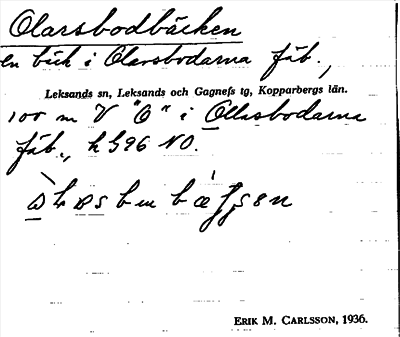 Olarsbodbäcken
en bäck i Olarsbodarna fäb.,
Leksands sn, Leksands och Gagnefs tg, Kopparbergs län.
100 m V "O" i Ollasbodarna
fäb., h 596 NO.
ERIK M. CARLSSON, 1936.